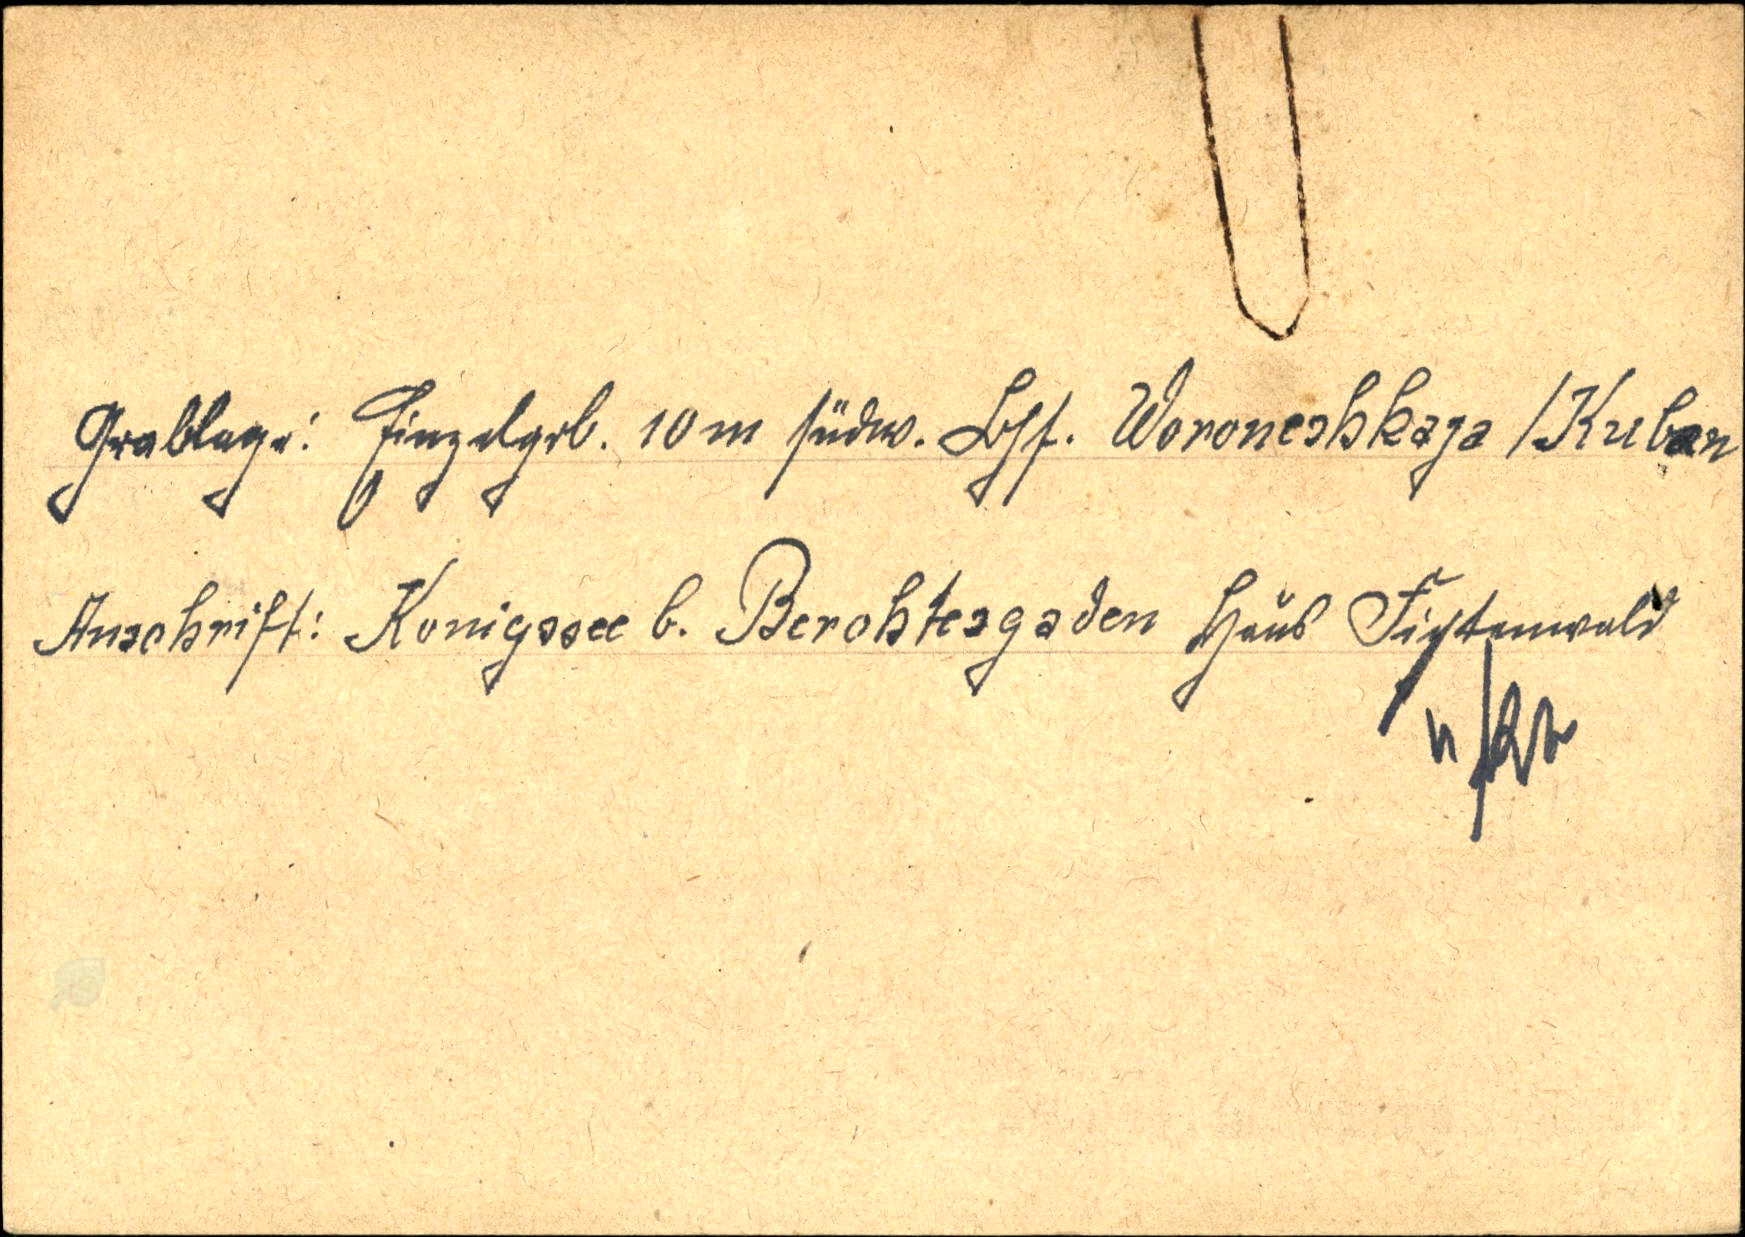 Grablage: Einzelgrb. 10 m südw. Bhf. Woroneshkaja / Kuban
Anschrift: Konigssee b. Berchtesgaden Haus Fichtenwald